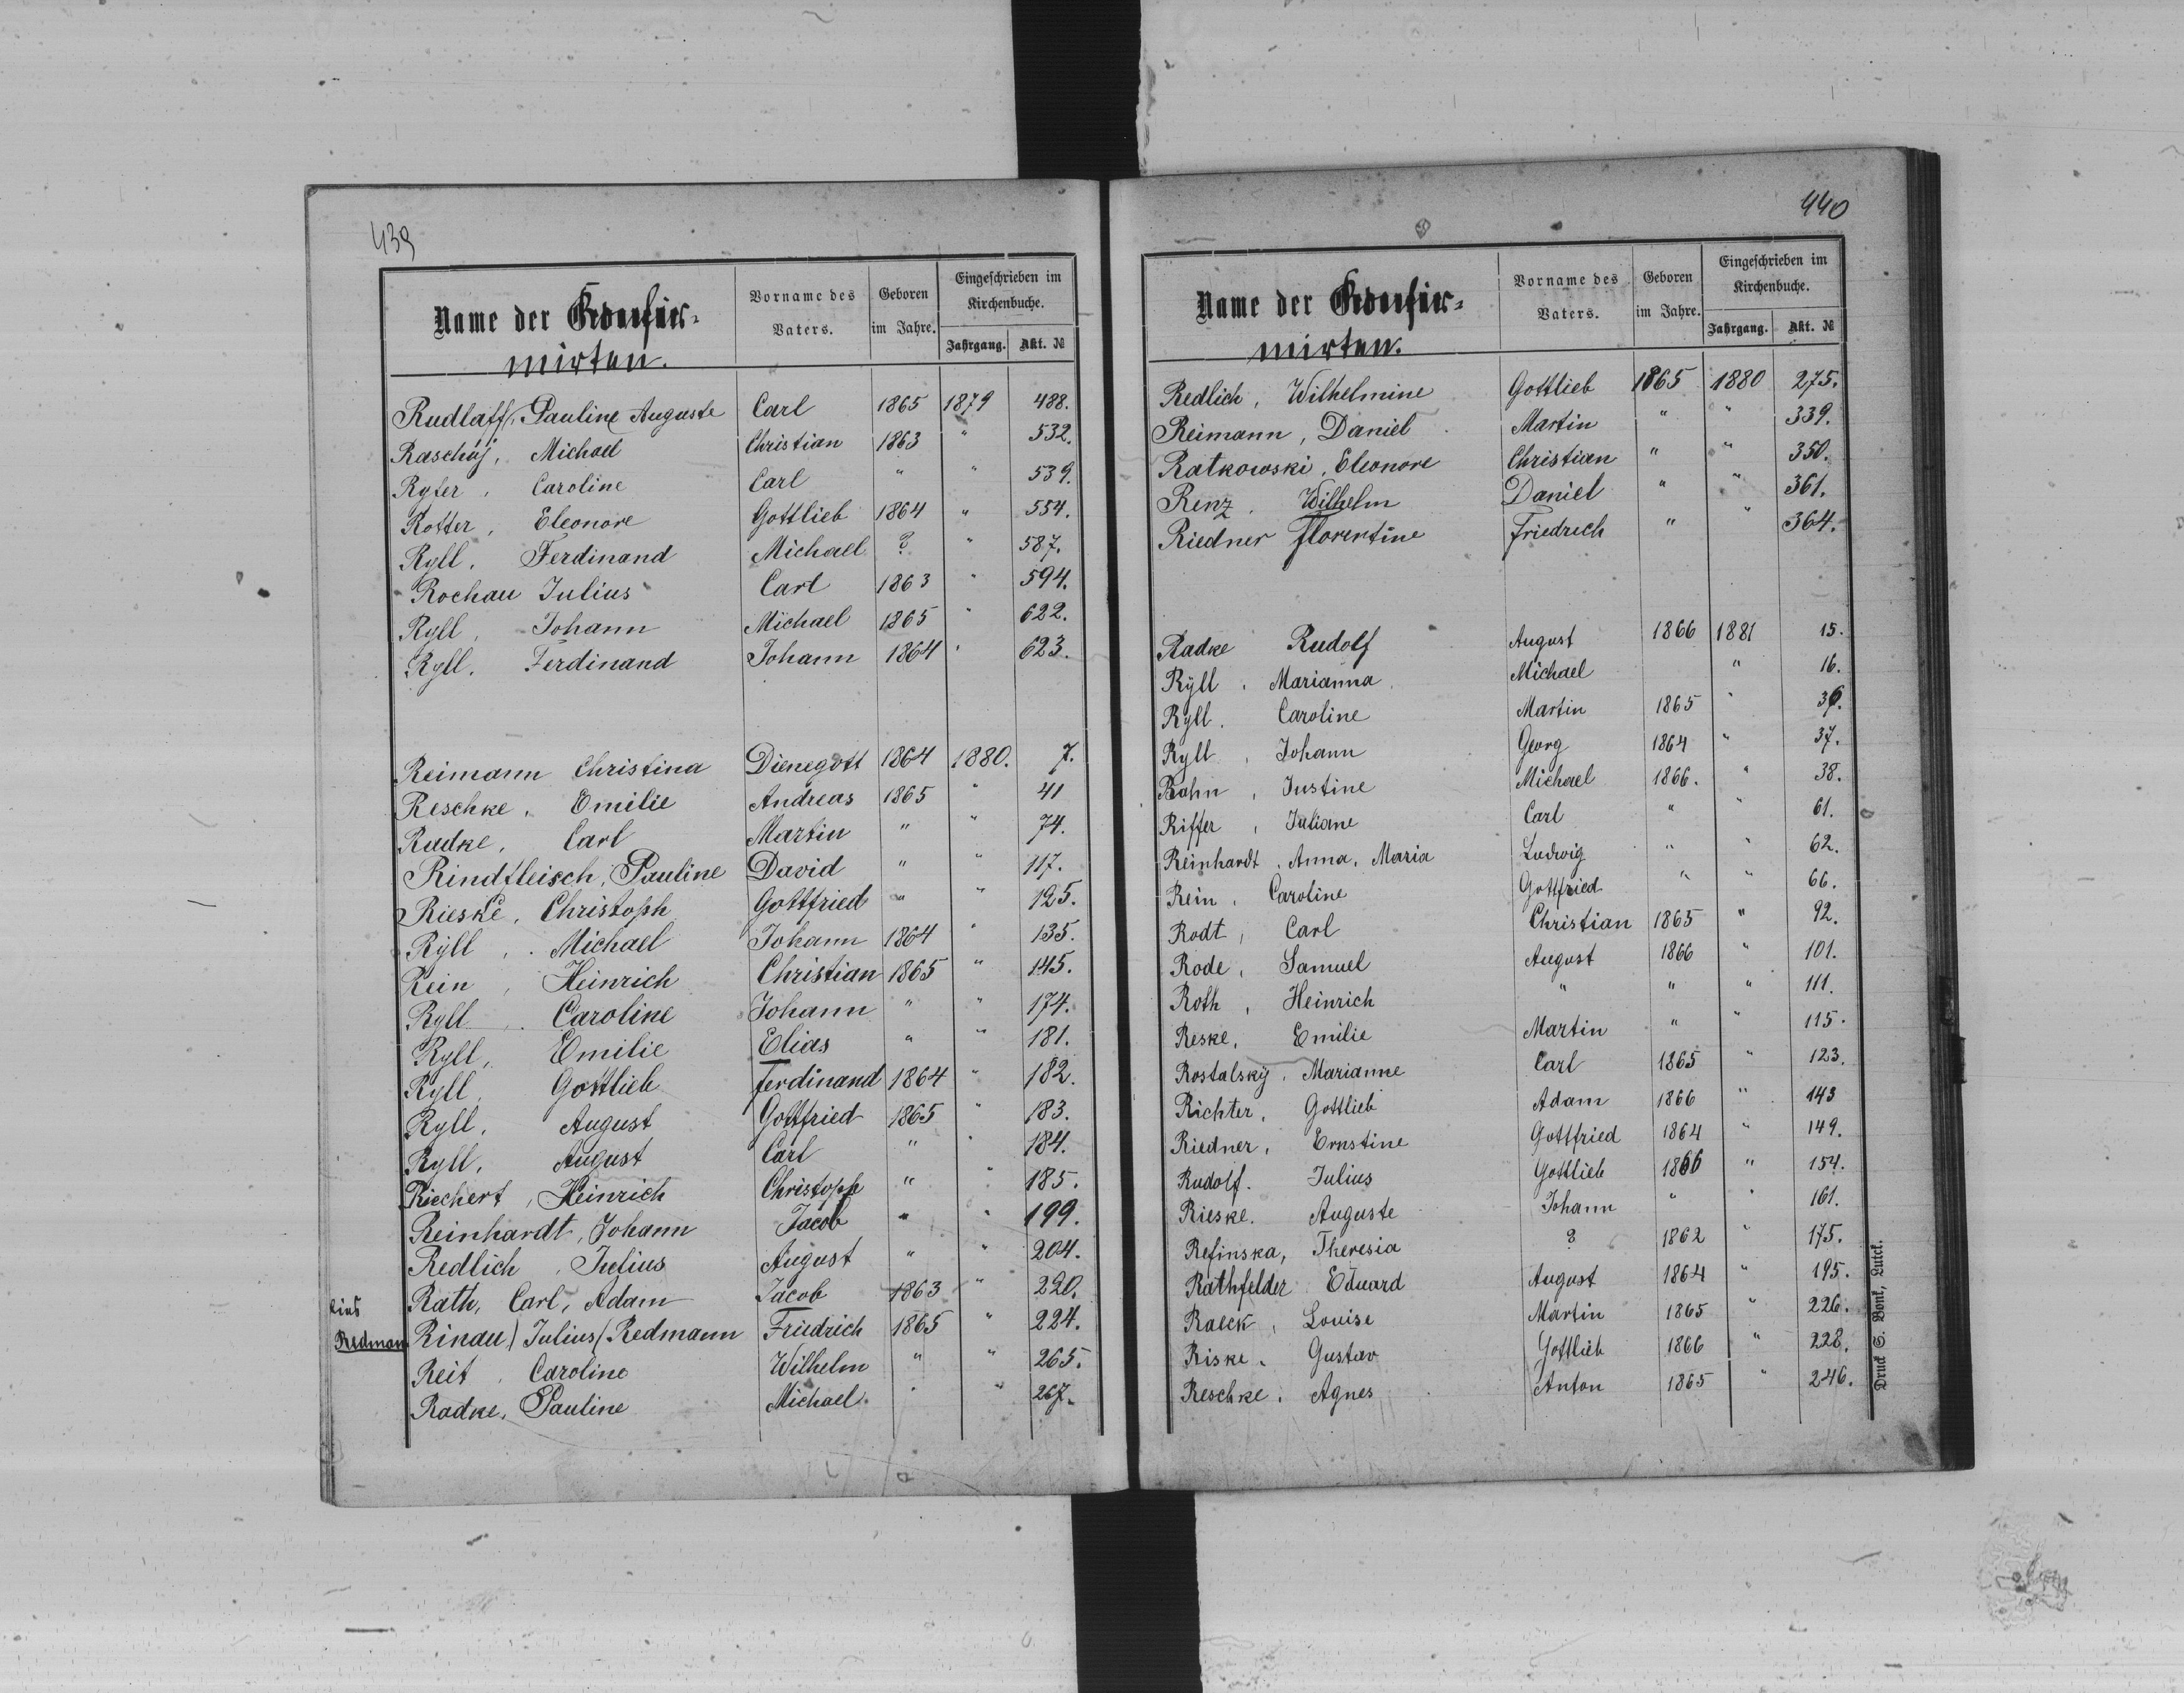 439
Name der Konfir-
mirten.
Vorname des Vaters.
Geboren im Jahre.
Eingeschrieben im Kirchenbuche.
Jahrgang. Akt. №
Rudlaff, Pauline Auguste Carl 1865 1879 488.
Raschüj, Michael Christian 1863 " 532.
Ryfer, Caroline Carl " " 539.
Rotter, Eleonore Gottlieb 1864 " 554.
Ryll, Ferdinand Michael ? " 587.
Rochau Julius Carl 1863 " 594.
Ryll, Johann Michael 1865 " 622.
Ryll, Ferdinand Johann 1864 " 623.
Reimann Christina Dienegott 1864 1880. 7.
Reschke, Emilie Andreas 1865 " 41
Radke, Carl Martin " " 74.
Rindfleisch, Pauline David " " 117.
Rieske, Christoph Gottfried " " 125.
Ryll, Michael Johann 1864 " 135.
Rein, Heinrich Christian 1865 " 145.
Ryll, Caroline Johann " " 174.
Ryll, Emilie Elias " " 181.
Ryll, Gottlieb Ferdinand 1864 " 182.
Ryll, August Gottfried 1865 " 183.
Ryll, August Carl " " 184.
Riechert, Heinrich Christoph " " 185.
Reinhardt, Johann Jacob " " 199.
Redlich, Julius August " " 204.
Rath, Carl, Adam Jacob 1863 " 220.
Redman Rinau) Julius (Redmann Friedrich 1865 " 224.
Reit, Caroline Wilhelm " " 265.
Radke, Pauline Michael. " " 267.
440
Name der Konfir-
mirten.
Vorname des Vaters.
Geboren im Jahre.
Eingeschrieben im Kirchenbuche.
Jahrgang. Akt. №
Redlich, Wilhelmine Gottlieb 1865 1880 275.
Reimann, Daniel Martin " " 339.
Ratkowski, Eleonore Christian " " 350.
Renz. Wilhelm Daniel " " 361.
Riedner Florentine Friedrich " " 364.
Radke Rudolf August 1866 1881 15.
Rÿll, Marianna Michael " 16.
Ryll. Caroline Martin 1865 " 36.
Ryll, Johann Georg 1864 " 37.
Rohn, Justine Michael 1866. " 38.
Riffer, Juliane Carl " " 61.
Reinhardt, Anna, Maria Ludwig " " 62.
Rein, Caroline Gottfried " " 66.
Rodt, Carl Christian 1865 " 92.
Rode, Samuel August 1866 " 101.
Roth, Heinrich " " " 111.
Reske, Emilie Martin " " 115.
Rostalskÿ, Marianne Carl 1865 " 123.
Richter, Gottlieb Adam 1866 " 143
Riedner, Ernstine Gottfried 1864 " 149.
Rudolf. Julius Gottlieb 1866 " 154.
Rieske. Auguste Johann " " 161.
Refinska, Theresia ? 1862 " 175.
Rathfelder Eduard August 1864 " 195.
Raeck, Louise Martin 1865 " 226.
Riske, Gustav Gottlieb 1866 " 228.
Reschke, Agnes Anton 1865 " 246.